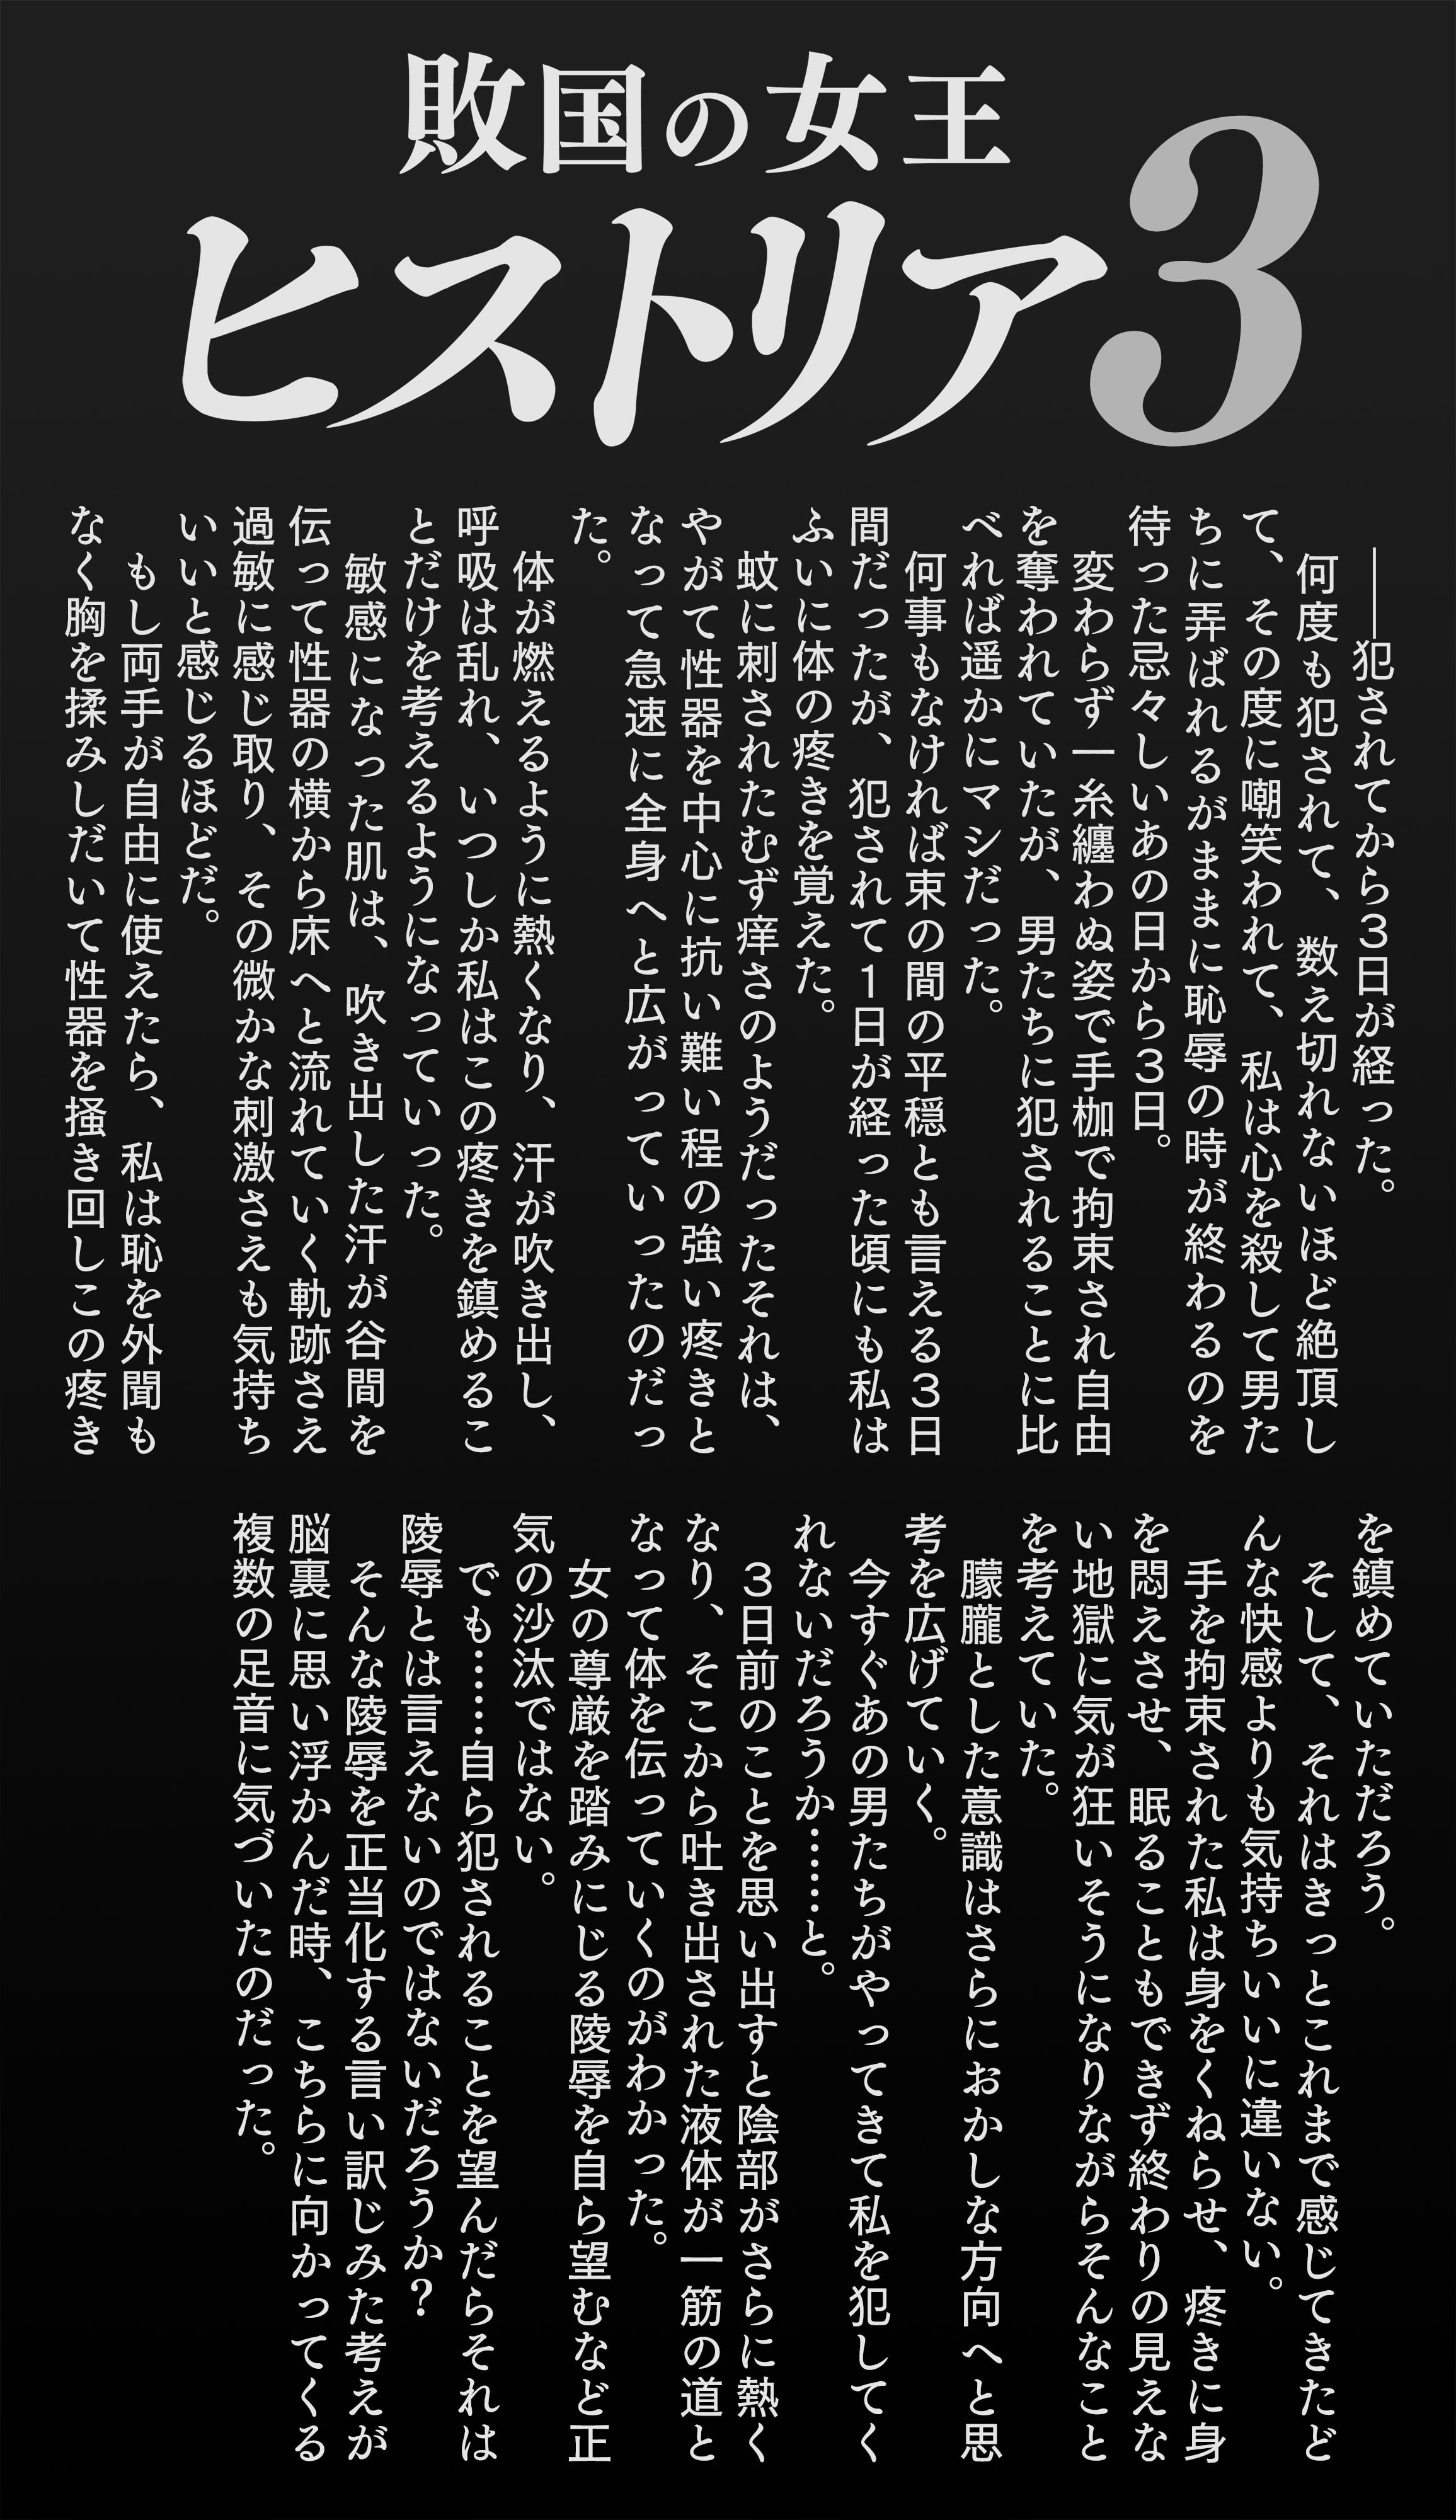 敗国の女王
ヒストリア3
――犯されてから３日が経った。
何度も犯されて、数え切れないほど絶頂し
て、その度に嘲笑われて、私は心を殺して男た
ちに弄ばれるがままに恥辱の時が終わるのを
待った忌々しいあの日から３日。
変わらず一糸纏わぬ姿で手枷で拘束され自由
を奪われていたが、男たちに犯されることに比
べれば遥かにマシだった。
何事もなければ束の間の平穏とも言える３日
間だったが、犯されて１日が経った頃にも私は
ふいに体の疼きを覚えた。
蚊に刺されたむず痒さのようだったそれは、
やがて性器を中心に抗い難い程の強い疼きと
なって急速に全身へと広がっていったのだっ
た。
体が燃えるように熱くなり、汗が吹き出し、
呼吸は乱れ、いつしか私はこの疼きを鎮めるこ
とだけを考えるようになっていった。
敏感になった肌は、吹き出した汗が谷間を
伝って性器の横から床へと流れていく軌跡さえ
過敏に感じ取り、その微かな刺激さえも気持ち
いいと感じるほどだ。
もし両手が自由に使えたら、私は恥を外聞も
なく胸を揉みしだいて性器を掻き回しこの疼き
を鎮めていただろう。
そして、それはきっとこれまで感じてきたど
んな快感よりも気持ちいいに違いない。
手を拘束された私は身をくねらせ、疼きに身
を悶えさせ、眠ることもできず終わりの見えな
い地獄に気が狂いそうになりながらそんなこと
を考えていた。
朦朧とした意識はさらにおかしな方向へと思
考を広げていく。
今すぐあの男たちがやってきて私を犯してく
れないだろうか……と。
３日前のことを思い出すと陰部がさらに熱く
なり、そこから吐き出された液体が一筋の道と
なって体を伝っていくのがわかった。
女の尊厳を踏みにじる陵辱を自ら望むなど正
気の沙汰ではない。
でも……自ら犯されることを望んだらそれは
陵辱とは言えないのではないだろうか？
そんな陵辱を正当化する言い訳じみた考えが
脳裏に思い浮かんだ時、こちらに向かってくる
複数の足音に気づいたのだった。